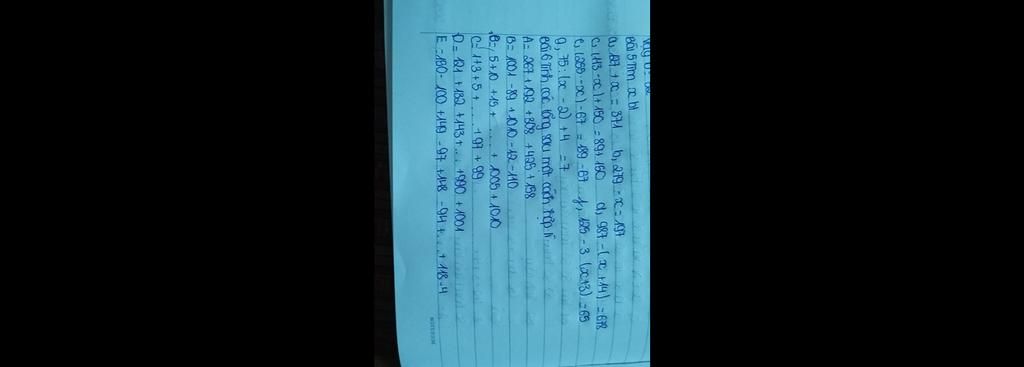 Bài 5 Tìm x bt
a, 127 + x = 371 b, 279 - x = 197
c, (113 - x) + 150 = 89 + 150 d, 987 - (x + 14) = 678
e, (259 - x) - 67 = 189 - 67 f, 125 - 3 (x+3) = 65
g, 75 : (x - 2) + 4 = 7
Bài 6 Tính các tổng sau một cách hợp lí
A = 267 + 192 + 808 + 425 + 158
B = 1001 - 89 + 1010 - 12 - 110
B = 5 + 10 + 15 + ..... + 1005 + 1010
C = 1+3+5+ ..... + 97 + 99
D = 121 + 132 + 143 + ... + 990 + 1001
E = 150 - 100 + 149 - 97 + 148 - 94 + ... + 118 - 4